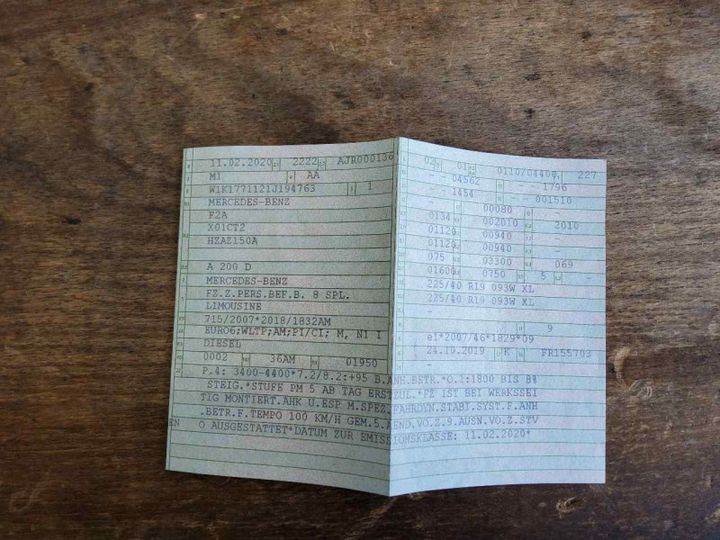 11.02.2020 2222 AJR000136
M1 AA
W1K1771121J194763 1
MERCEDES-BENZ
F2A
X01CT2
HZAZ150A
A 200 D
MERCEDES-BENZ
FZ.Z.PERS.BEF.B. 8 SPL.
LIMOUSINE
715/2007*2018/1832AM
EURO6;WLTP;AM;PI/CI; M, NI I
DIESEL
0002 36AM 01950
02 01 0110/04400, 227
- 04562 - - 1796
- - 1454 - - 001510
- 00080 -
0134 002010 2010
01120 00940 -
01120 00940 -
075 03300 069
01600 0750 5 -
225/40 R19 093W XL
225/40 R19 093W XL
9
e1*2007/46*1829*09
24.10.2019 K FR155703
P.4: 3400-4400*7.2/8.2:+95 B.ANH.BETR.*O.1:1800 BIS 8%
STEIG.*STUFE PM 5 AB TAG ERSTZUL.*FZ IST BEI WERKSSEI
TIG MONTIERT.AHK U.ESP M.SPEZ.FAHRDYN.STABI.SYST.F.ANH
.BETR.F.TEMPO 100 KM/H GEM.5.AEND.VO.Z.9.AUSN.VO.Z.STV
O AUSGESTATTET*DATUM ZUR EMISSIONSKLASSE: 11.02.2020*